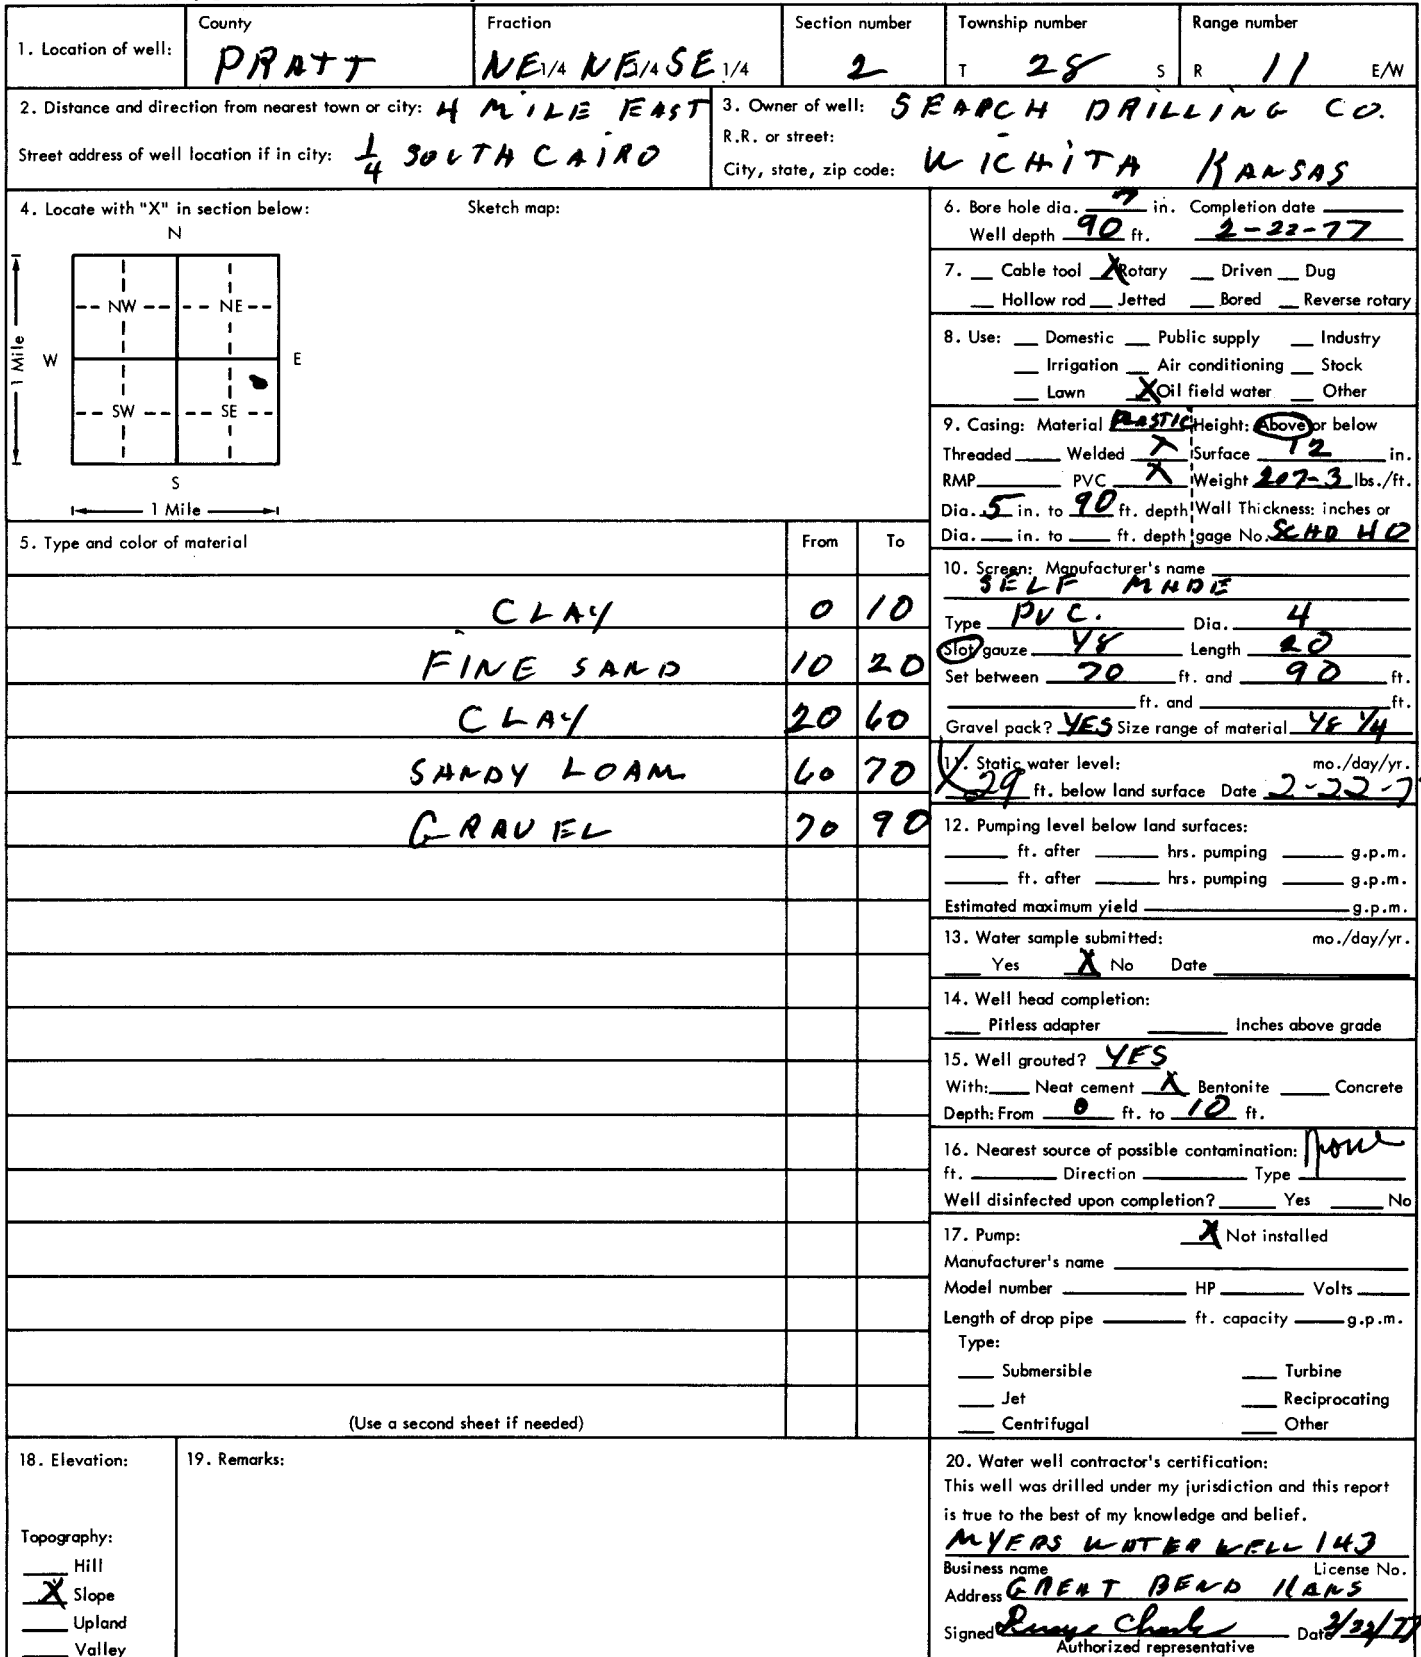 County Fraction Section number Township number Range number
1. Location of well: PRATT NE 1/4 NE 1/4 SE 1/4 2 T 28 S R 11 E/W
2. Distance and direction from nearest town or city: 4 MILE EAST
Street address of well location if in city: 1/4 SOUTH CAIRO
3. Owner of well: SEARCH DRILLING CO.
R.R. or street:
City, state, zip code: WICHITA KANSAS
4. Locate with "X" in section below: Sketch map:
N
NW NE
W E
1 Mile
SW SE
S
1 Mile
5. Type and color of material From To
CLAY 0 10
FINE SAND 10 20
CLAY 20 60
SANDY LOAM 60 70
GRAVEL 70 90
(Use a second sheet if needed)
6. Bore hole dia. 7 in. Completion date
Well depth 90 ft. 2-22-77
7. __ Cable tool X Rotary __ Driven __ Dug
__ Hollow rod __ Jetted __ Bored __ Reverse rotary
8. Use: __ Domestic __ Public supply __ Industry
__ Irrigation __ Air conditioning __ Stock
__ Lawn X Oil field water __ Other
9. Casing: Material PLASTIC Height: Above or below
Threaded __ Welded X Surface 12 in.
RMP __ PVC X Weight 207-3 lbs./ft.
Dia. 5 in. to 90 ft. depth Wall Thickness: inches or
Dia. __ in. to __ ft. depth gage No. SCHD 40
10. Screen: Manufacturer's name
SELF MADE
Type PVC. Dia. 4
Slot/gauze 1/8 Length 20
Set between 70 ft. and 90 ft.
__ ft. and __ ft.
Gravel pack? YES Size range of material 1/8 1/4
11. Static water level: mo./day/yr.
X 29 ft. below land surface Date 2-22-7
12. Pumping level below land surfaces:
__ ft. after __ hrs. pumping __ g.p.m.
__ ft. after __ hrs. pumping __ g.p.m.
Estimated maximum yield __ g.p.m.
13. Water sample submitted: mo./day/yr.
__ Yes X No Date __
14. Well head completion:
__ Pitless adapter __ Inches above grade
15. Well grouted? YES
With: __ Neat cement X Bentonite __ Concrete
Depth: From 0 ft. to 10 ft.
16. Nearest source of possible contamination: none
ft. __ Direction __ Type __
Well disinfected upon completion? __ Yes __ No
17. Pump: X Not installed
Manufacturer's name __
Model number __ HP __ Volts __
Length of drop pipe __ ft. capacity __ g.p.m.
Type:
__ Submersible __ Turbine
__ Jet __ Reciprocating
__ Centrifugal __ Other
18. Elevation:
Topography:
__ Hill
X Slope
__ Upland
__ Valley
19. Remarks:
20. Water well contractor's certification:
This well was drilled under my jurisdiction and this report
is true to the best of my knowledge and belief.
MYERS WATER WELL 143
Business name License No.
Address GREAT BEND KANS
Signed Date 2/22/77
Authorized representative